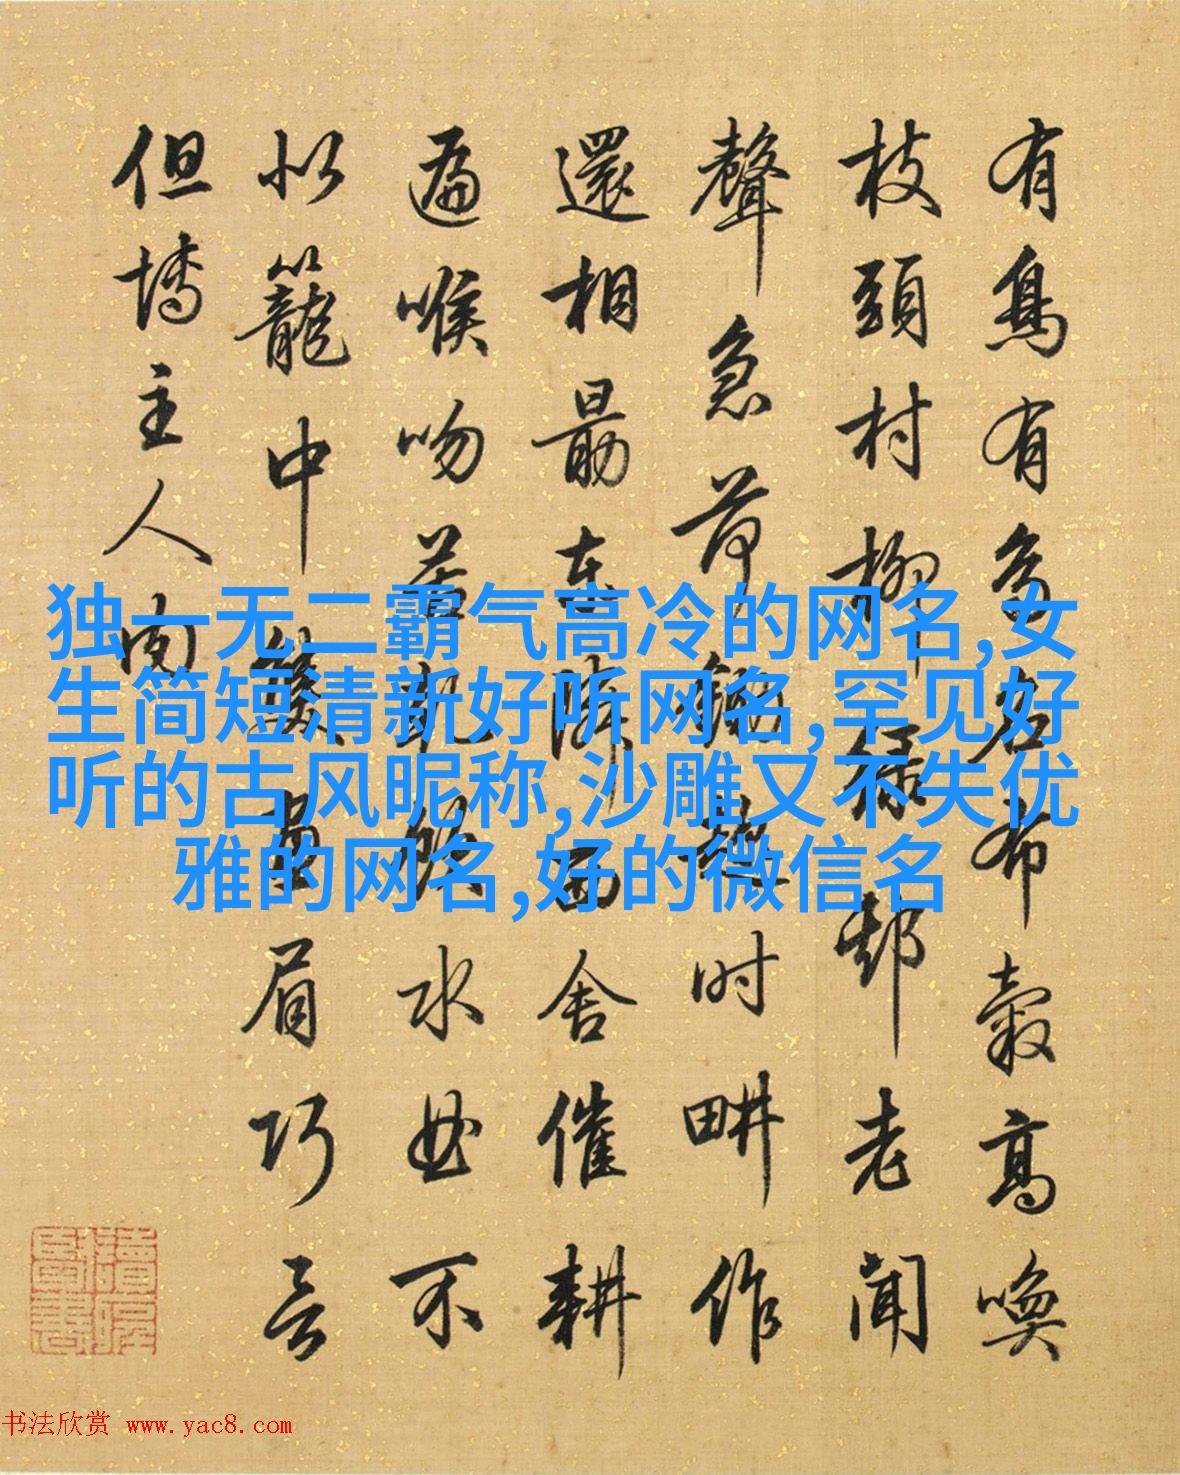 有鳥有鳥名布穀高喚
枝頭村柳綠邨老聞
聲急荷鋤趁時畊作
還相勗東隣西舍催耕
遍喉吻若乾飲水不
似籠中畫眉巧言
但博主人肉
独一无二霸气高冷的网名,女
生简短清新好听网名,罕见好
听的古风昵称,沙雕又不失优
雅的网名,好的微信名
书法欣赏 www.yac8.com